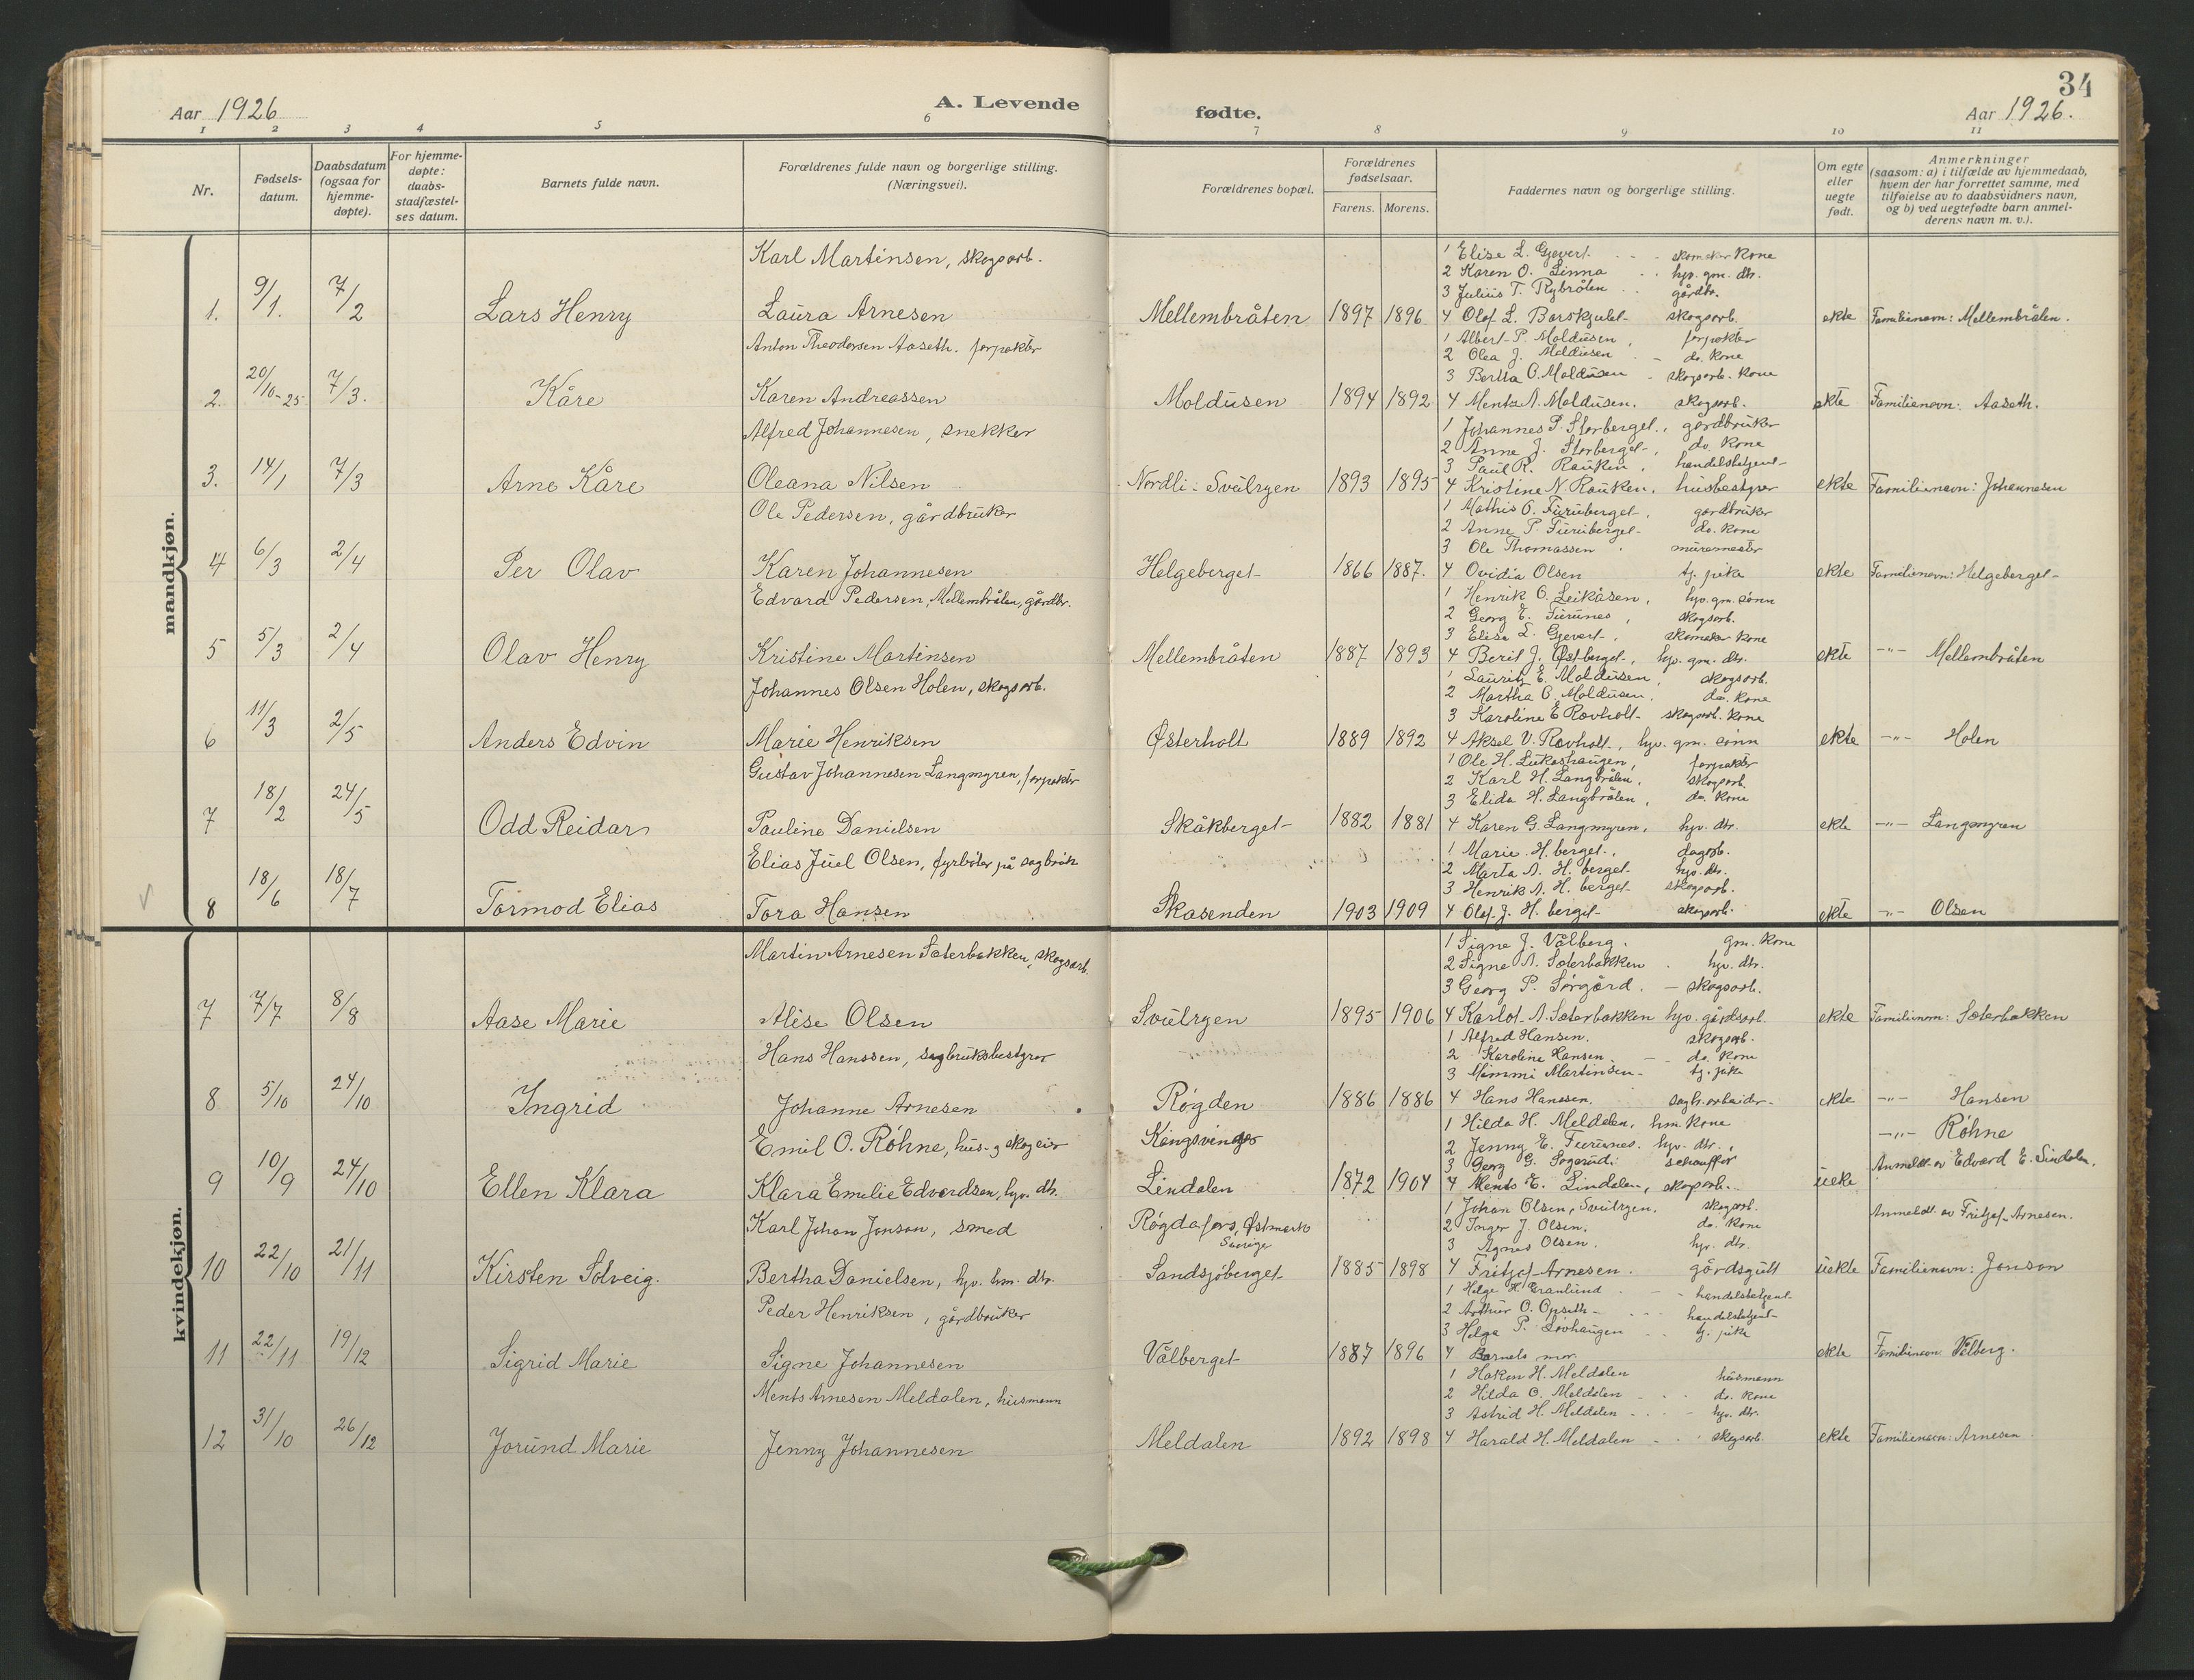 34
Aar 1926
A. Levende
fødte.
Aar 1926.
1 2 3 4 5 6 7 8 9 10 11
Nr.
Fødsels-
datum.
Daabsdatum
(ogsaa for
hjemme-
døpte).
For hjemme-
døpte:
daabs-
stadfæstel-
ses datum.
Barnets fulde navn.
Forældrenes fulde navn og borgerlige stilling.
(Næringsvei).
Forældrenes bopæl.
Forældrenes
fødselsaar.
Farens. Morens.
Faddernes navn og borgerlige stilling.
Om egte
eller
uegte
født.
Anmerkninger
(saasom: a) i tilfælde av hjemmedaab,
hvem der har forrettet samme, med
tilføielse av to daabsvidners navn,
og b) ved uegtefødte barn anmel-
derens navn m. v.).
mandkjøn.
Karl Martinsen, skogsarb.
1 Elise L. Gjevert. skomaker kone
2 Karen O. Linna hjv. gm. dtr.
3 Julius T. Rybråten gårdbr.
1. 9/1. 7/2 Lars Henry Laura Arnesen Mellembråten 1897 1896 4 Olaf L. Barskjulet skogsarb. ekte Familienavn: Mellembråten.
Anton Theodorsen Aaseth. forpakter
1 Albert P. Moldusen, forpakter
2 Olea J. Moldusen do. kone
3 Bertha O. Moldusen skogsarb. kone
2. 20/10-25 7/3. Kåre Karen Andreassen Moldusen 1894 1892 4 Mentz A. Moldusen. skogsarb. ekte Familienavn: Aaseth.
Alfred Johannesen, snekker
1 Johannes P. Storberget, gårdbruker
2 Anne J. Storberget, do. kone
3 Paul R. Rauken, handelsbetjent
3. 14/1 7/3 Arne Kåre Oleana Nilsen Nordli: Svulryen 1893 1895 4 Kristine N. Rauken, husbestyrer ekte Familienavn: Johannesen
Ole Pedersen, gårdbruker
1 Mathis O. Furuberget, gårdbruker
2 Anne P. Furuberget do. kone
3 Ole Thomassen muremester
4 6/3 2/4 Per Olav Karen Johannesen Helgeberget 1866 1887. 4 Ovidia Olsen tj. pike ekte Familienavn: Helgeberget
Edvard Pedersen, Mellembråten, gårdbr.
1 Henrik O. Leikåsen, hjv. gm. sønn
2 Georg E. Furunes, skogsarb.
3 Elise L. Gjevert, skomaker kone
5 5/3 2/4 Olav Henry Kristine Martinsen Mellembråten 1887 1893 4 Berit J. Østberget, hjv. gm. dtr. ekte -"- Mellembråten
Johannes Olsen Holen, skogsarb.
1 Lauritz E. Moldusen, skogsarb.
2 Martha O. Moldusen. do. kone
3 Karoline E. Rovholt skogsarb. kone
6 11/3 2/5 Anders Edvin Marie Henriksen Østerholt 1889 1892 4 Aksel V. Rovholt, hjv. gm. sønn ekte -"- Holen
Gustav Johannesen Langmyren, forpakter
1 Ole H. Lukashaugen, forpakter
2 Karl H. Langbråten, skogsarb.
3 Elida H. Langbråten, do. kone
7 18/2 24/5 Odd Reidar Pauline Danielsen Skåkberget 1882 1881 4 Karen G. Langmyren, hjv. dtr. ekte -"- Langmyren
Elias Juel Olsen, fyrbøter på sagbruk
1 Marie H. berget, dagarb.
2 Marta A. H. berget hjv. dtr.
3 Henrik A. H. berget skogsarb.
8 18/6 18/7 Tormod Elias Tora Hansen Skasenden 1903 1909 4 Olaf J. H. berget skogsarb. ekte -"- Olsen
kvindekjøn.
Martin Arnesen Sæterbakken, skogsarb.
1 Signe J. Vålberg. gm. kone
2 Signe A. Sæterbakken hjv. dtr.
3 Georg P. Sørgård. skogsarb.
7 7/7 8/8 Aase Marie Alise Olsen Svulryen 1895 1906 4 Karlot A. Sæterbakken hjv. gårdsarb. ekte Familienavn: Sæterbakken
Hans Hanssen, sagbruksbestyrer
1 Alfred Hansen. skogsarb.
2 Karoline Hansen. do. kone
3 Mimmi Martinsen tj. pike
8 5/10 24/10 Ingrid Johanne Arnesen Røgden 1886 1886 4 Hans Hanssen. sagb. arbeider ekte -"- Hansen
Emil O. Røhne, hus- og skogeier Kongsvinger
1 Hilda H. Meldalen, hm. kone
2 Jenny E. Furunes. hjv. dtr.
3 Georg G. Sogerud: schauffør
-"- Røhne
Anmeldt av Edvard E. Lindalen.
9 10/9 24/10 Ellen Klara Klara Emelie Edvardsen, hjv. dtr. Lindalen 1872 1904 4 Ments E. Lindalen, skogsarb. uekte
Karl Johan Jonson, smed Røgdafors, Østmark Sverige
1 Johan Olsen, Svulryen. skogsarb.
2 Inger J. Olsen. do. kone
3 Agnes Olsen. hjv. dtr.
Anmeldt av Fritjof Arnesen.
10 22/10 21/11 Kirsten Solveig. Bertha Danielsen, hjv. hm. dtr. Sandsjøberget 1885 1898 4 Fritjof Arnesen. gårdsgutt uekte Familienavn: Jonson
Peder Henriksen, gårdbruker
1 Helge H. Granlund handelsbetjent
2 Arthur O. Opseth handelsbetjent
3 Helga P. Lovhaugen tj. pike
11 22/11 19/12 Sigrid Marie Signe Johannesen Vålberget 1887 1896 4 Barnets mor ekte Familienavn Vålberg.
Ments Arnesen Meldalen, husmann
1 Håkon H. Meldalen husmann
2 Hilda O. Meldalen do. kone
3 Astrid H. Meldalen hjv. dtr.
12 31/10 26/12 Jorund Marie Jenny Johannesen Meldalen 1892 1898 4 Harald H. Meldalen skogsarb. ekte Familienavn: Arnesen